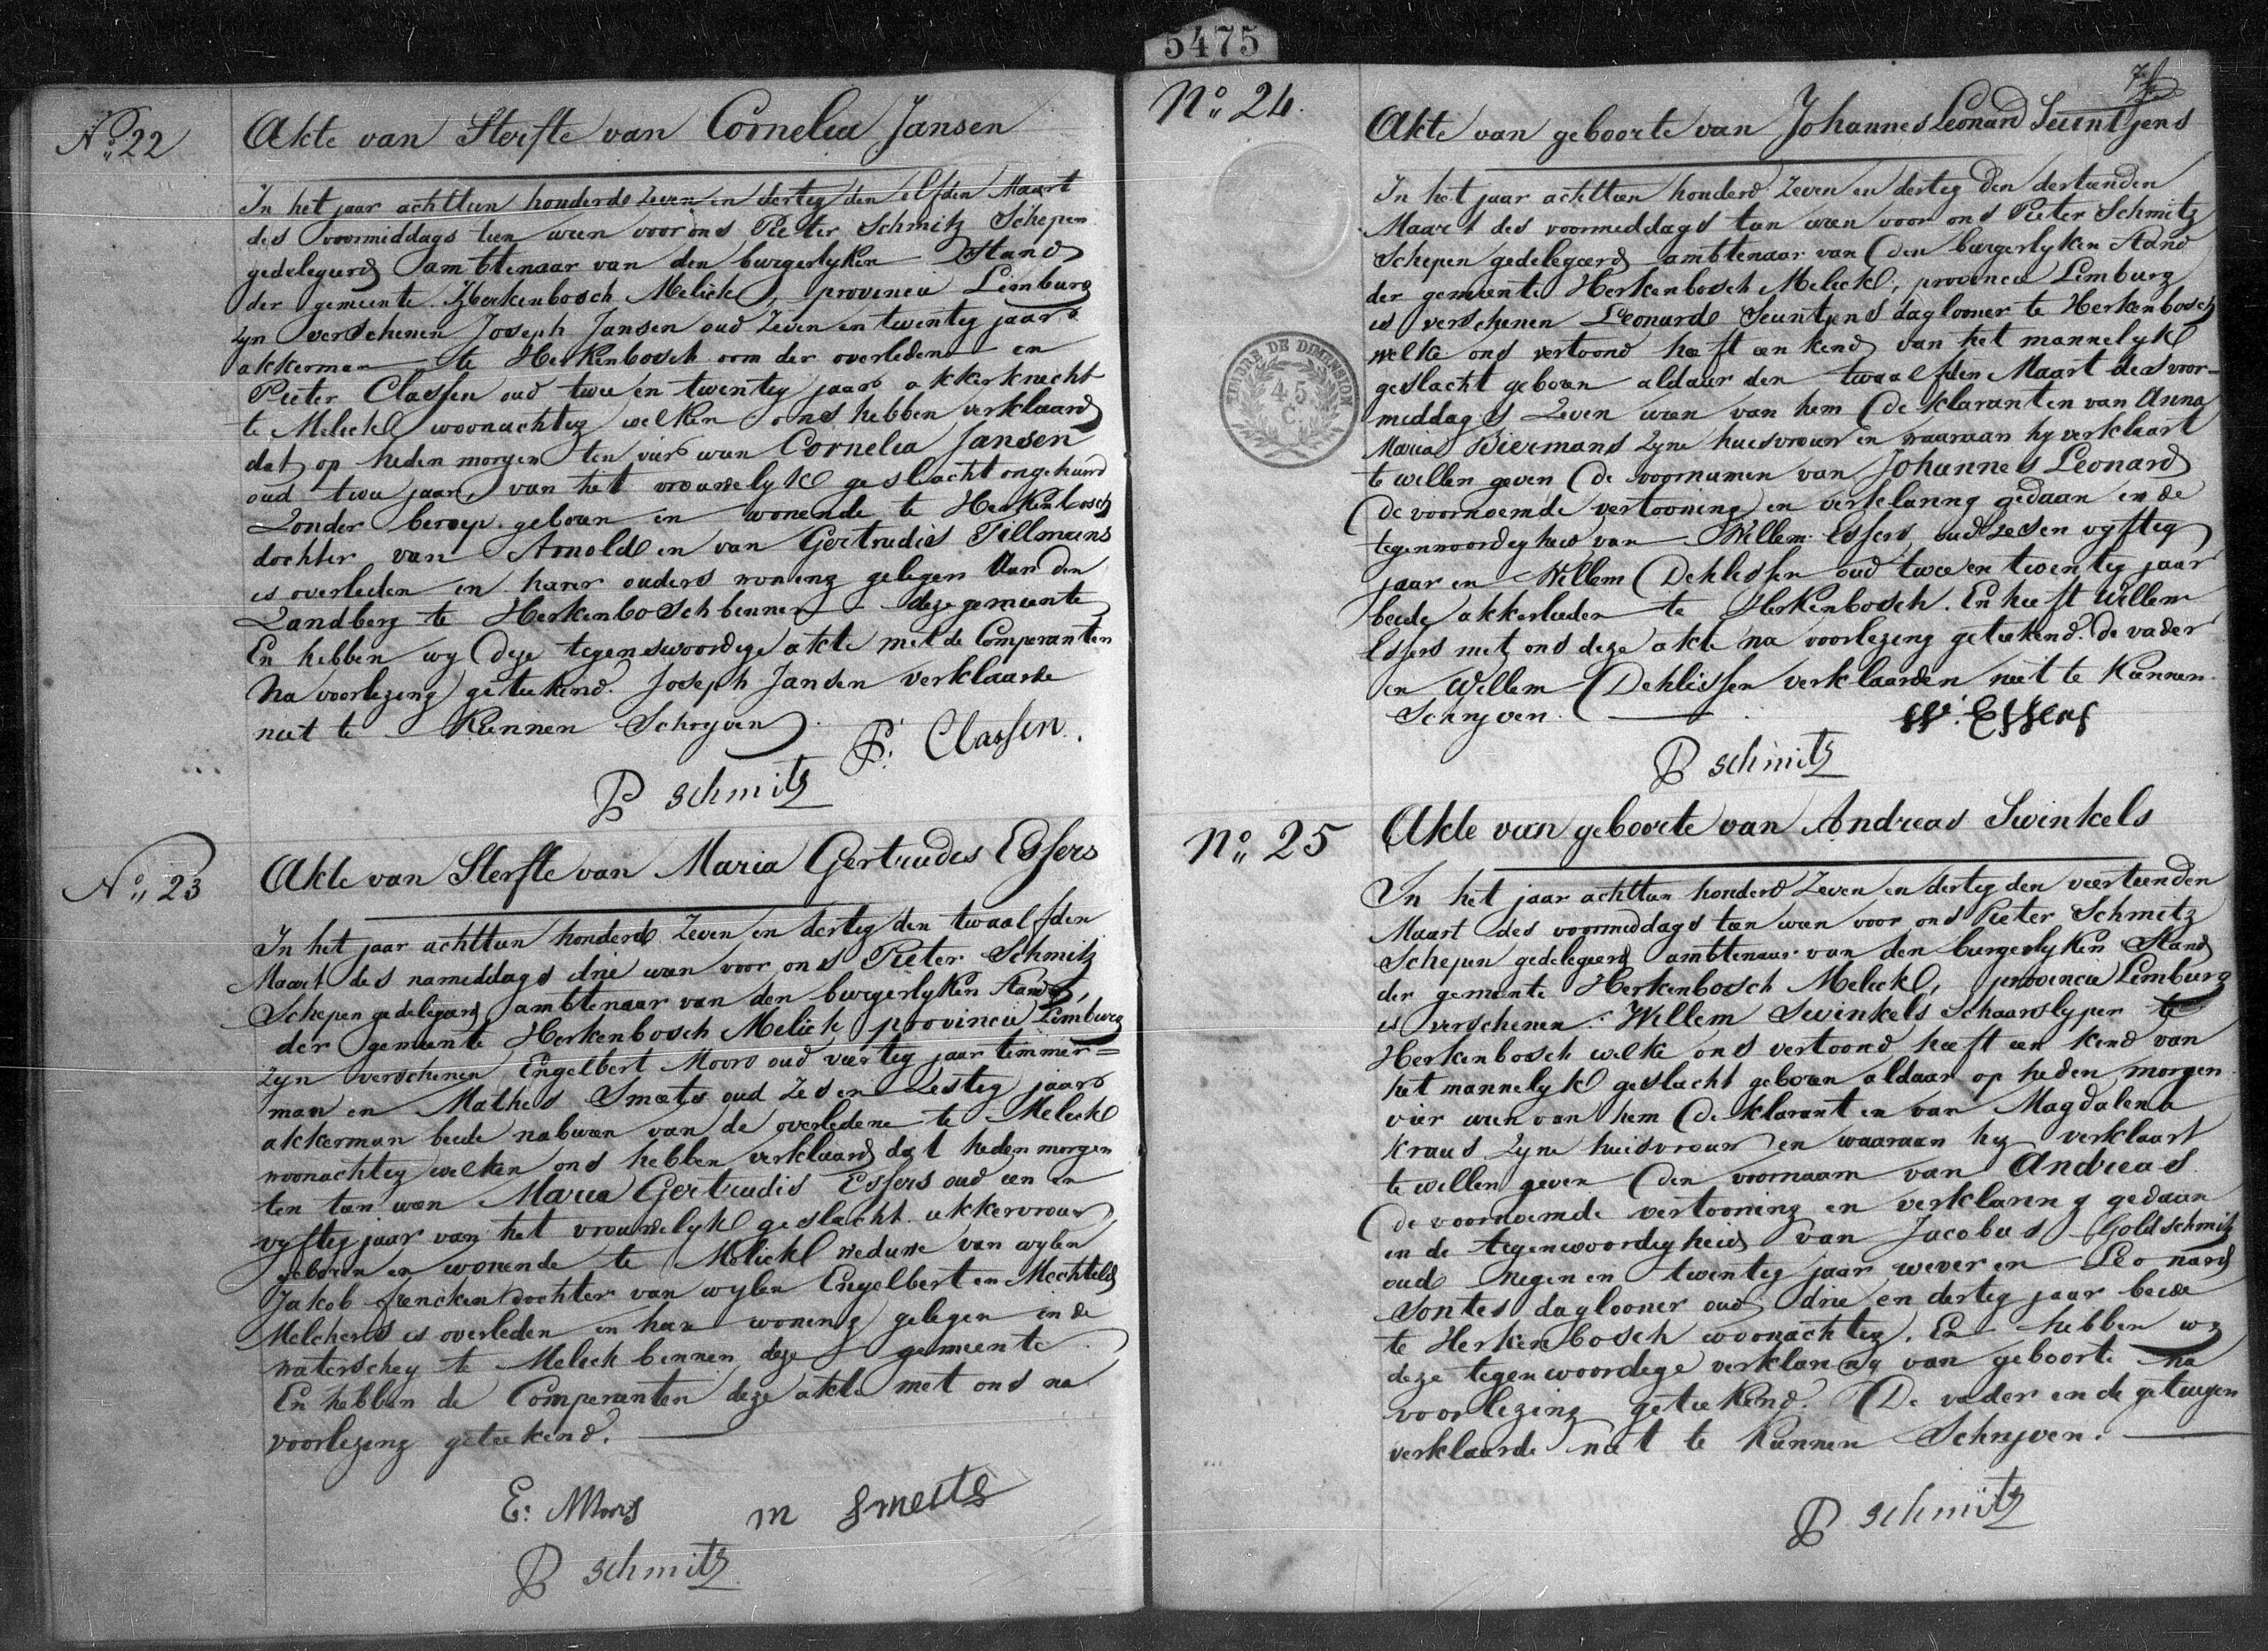 5475
No 22
Akte van Sterfte van Cornelia Jansen
In het jaar achttien honderd zeven en dertig den elfden Maart
des voormiddags tien uren voor ons Pieter Schmitz Schepen
gedelegeerd ambtenaar van den burgerlyken Stand
der gemeente Herkenbosch Melick, provincie Limburg
zyn verschenen Joseph Jansen oud zeven en twintig jaar
akkerman te Herkenbosch oom der overledene en
Pieter Classen oud twee en twintig jaar akkerknecht
te Melick woonachtig welken ons hebben verklaard
dat op heden morgen ten vier uren Cornelia Jansen
oud twee jaar, van het vrouwelyk geslacht ongehuwd
zonder beroep geboren en wonende te Herkenbosch
dochter van Arnold en van Gertrudis Tillmans
is overleden in harer ouders woning gelegen Aan den
Zandberg te Herkenbosch binnen deze gemeente
En hebben wy deze tegenswoordige akte met de Comparanten
Na voorlezing geteekend. Joseph Jansen verklaarde
niet te Kunnen Schryven.
P: Classen.
P Schmitz
No 23
Akte van Sterfte van Maria Gertrudes Essers
In het jaar achttien honderd zeven en dertig den twaalfden
Maart des namiddags drie uren voor ons Pieter Schmitz
Schepen gedelegeerd ambtenaar van den burgerlyken Stand,
der gemeente Herkenbosch Melick, provincie Limburg
zyn verschenen Engelbert Moors oud veertig jaar timmer=
man en Mathes Smeets oud zes en zestig jaar
akkerman beide naburen van de overledene te Melick
woonachtig welken ons hebben verklaard dat heden morgen
ten tien uren Maria Gertrudis Essers oud een en
vyftig jaar van het vrouwelyk geslacht akkervrouw
geboren en wonende te Melick weduwe van wylen
Jakob Frencken dochter van wylen Engelbert en Mechteld
Melchers is overleden in hare woning gelegen in de
waterschey te Melick binnen deze gemeente
En hebben de Comparanten deze akte met ons na
voorlezing geteekend.
E: Moors m smeets
P Schmitz
No 24.
Akte van geboorte van Johannes Leonard Seuntjens
TIMBRE DE DIMENSION
45
C.
In het jaar achttien honderd zeven en dertig den dertienden
Maart des voormiddags tien uren voor ons Pieter Schmitz
Schepen gedelegeerd ambtenaar van den burgerlyken Stand
der gemeente Herkenbosch Melick, provincie Limburg
is verschenen Leonard Seuntjens daglooner te Herkenbosch
welke ons vertoond heeft een kind van het mannelyk
geslacht geboren aldaar den twaalfden Maart des voor-
middags zeven uren van hem deklarant en van Anna
Maria Biermans zyne huisvrouw en waaraan hy verklaart
te willen geven de voornamen van Johannes Leonard
De voornoemde vertooning en verklaring gedaan in de
tegenwoordigheid van Willem Essers, oud zes en vyftig
jaar en Willem Dehlissen oud twee en twintig jaar
beide akkerlieden te Herkenbosch. En heeft Willem
Essers met ons deze akte na voorlezing geteekend. De vader
en Willem Dehlissen verklaarden niet te Kunnen
Schryven.
W: Essers
P Schmitz
No 25
Akte van geboorte van Andreas Swinkels
In het jaar achttien honderd zeven en dertig den veertienden
Maart des voormiddags tien uren voor ons Pieter Schmitz
Schepen gedelegeerd ambtenaar van den burgerlyken Stand
der gemeente Herkenbosch Melick, provincie Limburg
is verschenen Willem Swinkels Schaarslyper te
Herkenbosch welke ons vertoond heeft een kind van
het mannelyk geslacht geboren aldaar op heden morgen
vier uren van hem deklarant en van Magdalena
Kraus zyne huisvrouw en waaraan hy verklaart
te willen geven den voornaam van Andreas.
De voornoemde vertooning en verklaring gedaan
in de tegenwoordigheid van Jacobus Goldschmitz
oud negen en twintig jaar wever en Leonard
Sontes daglooner oud drie en dertig jaar beide
te Herkenbosch woonachtig. En hebben wy
deze tegenwoordige verklaring van geboorte na
voorlezing geteekend. De vader en de getuigen
verklaarde niet te Kunnen Schryven.
P Schmitz